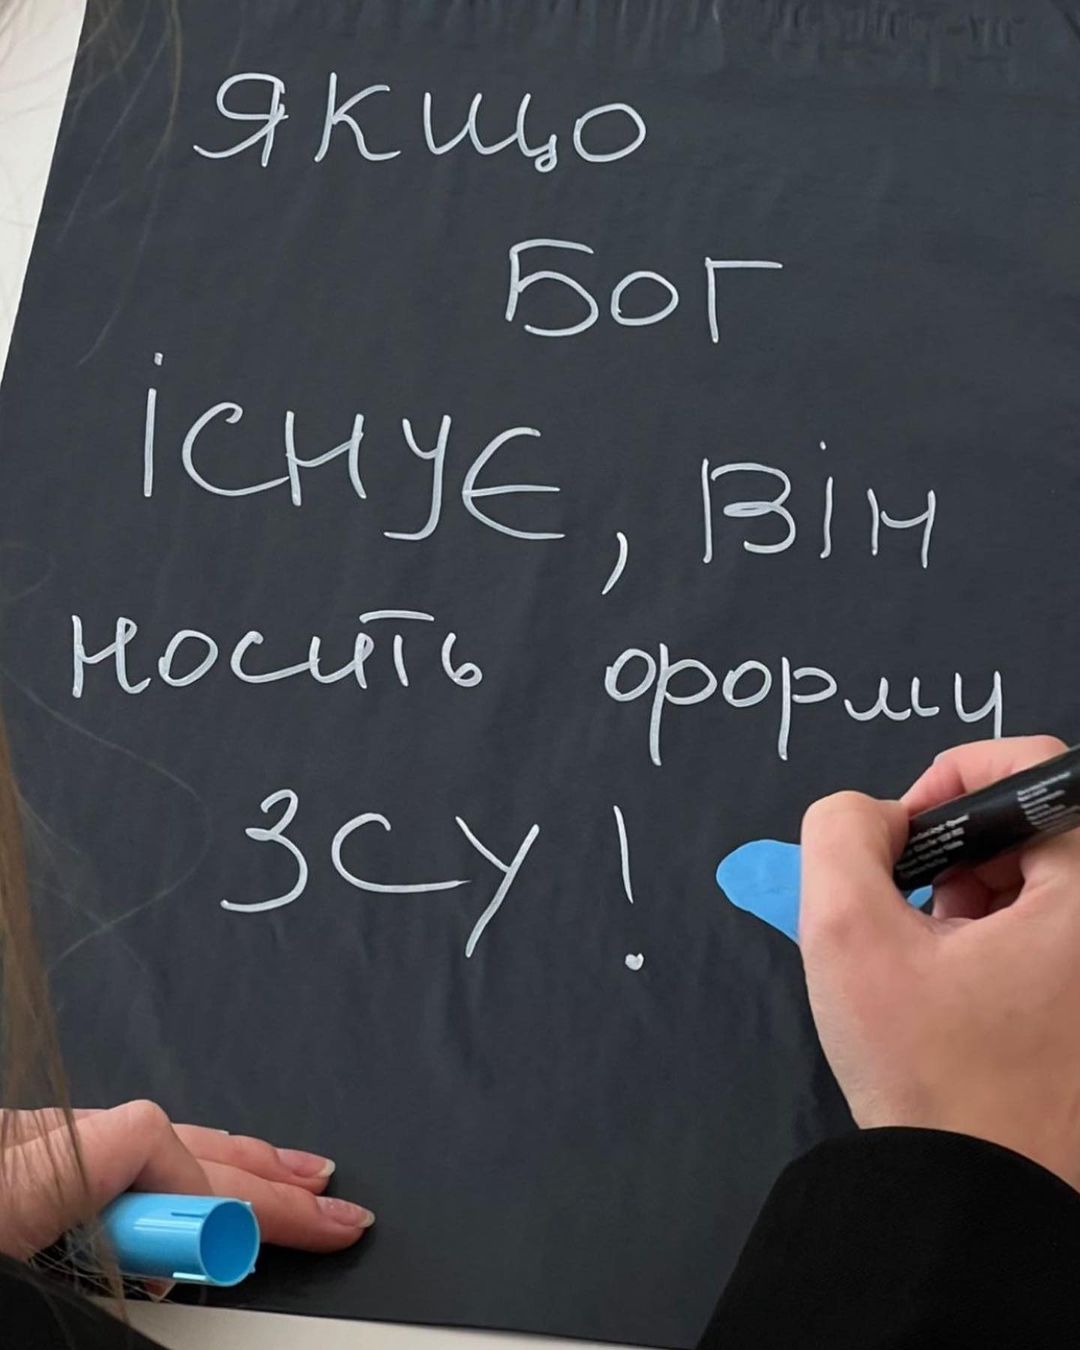 Якщо
Бог
існує, він
носить форму
ЗСУ!